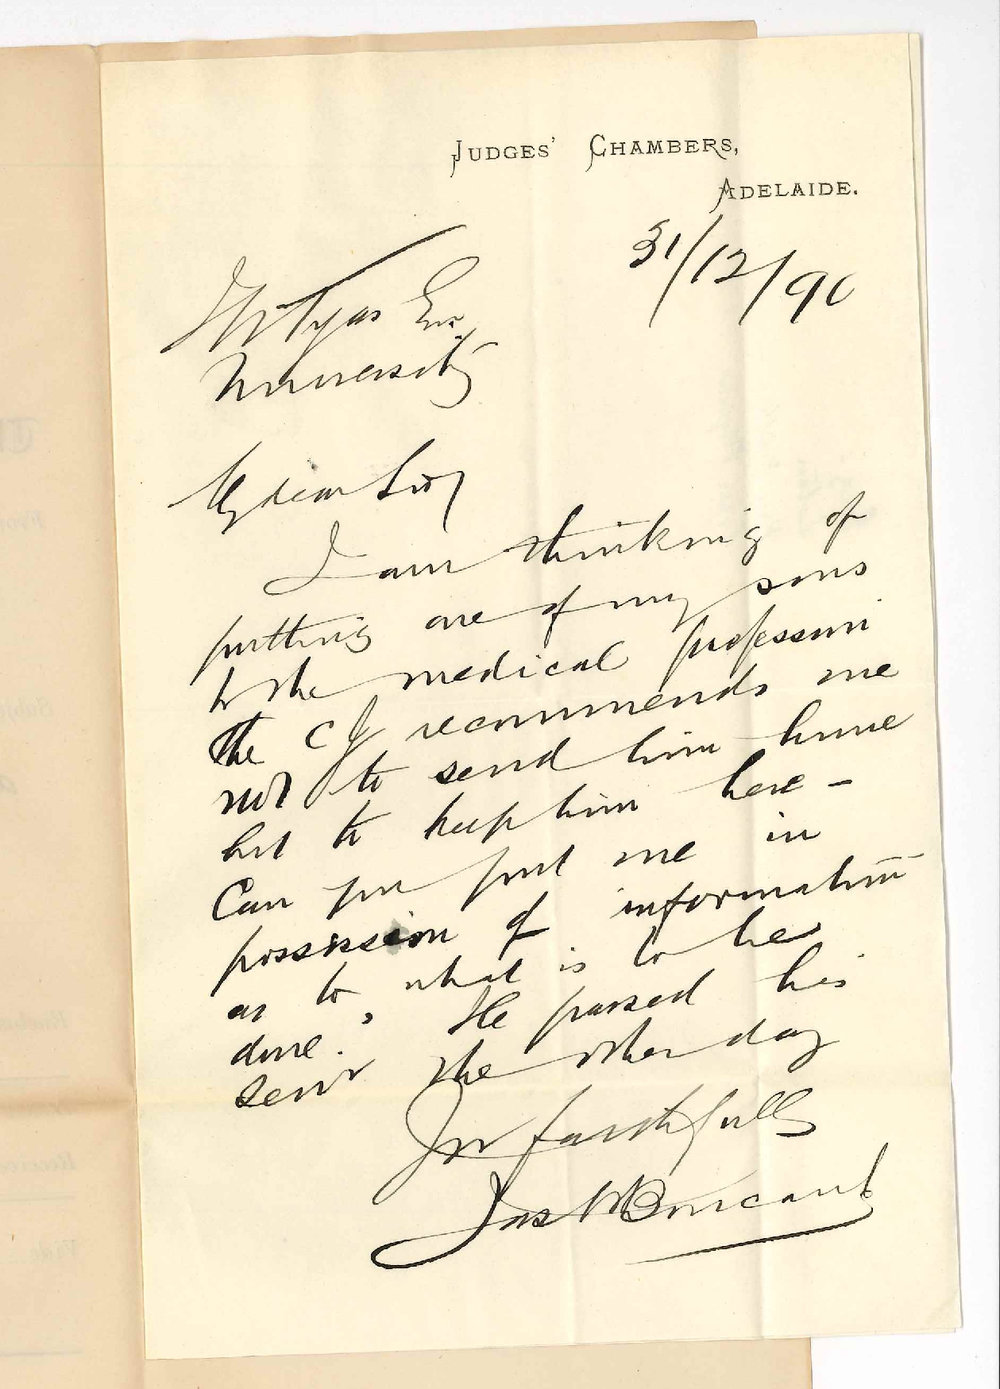 JUDGES' CHAMBERS,
ADELAIDE.
31/12/90
J W Tyas Esq
University
My dear Sir
I am thinking of
putting one of my sons
to the medical profession
the CJ recommends me
not to send him home
but to keep him here –
Can you put me in
possession of information
as to what is to be
done. He passed his
senr the other day
Yrs faithfully
Jas P Boucaut